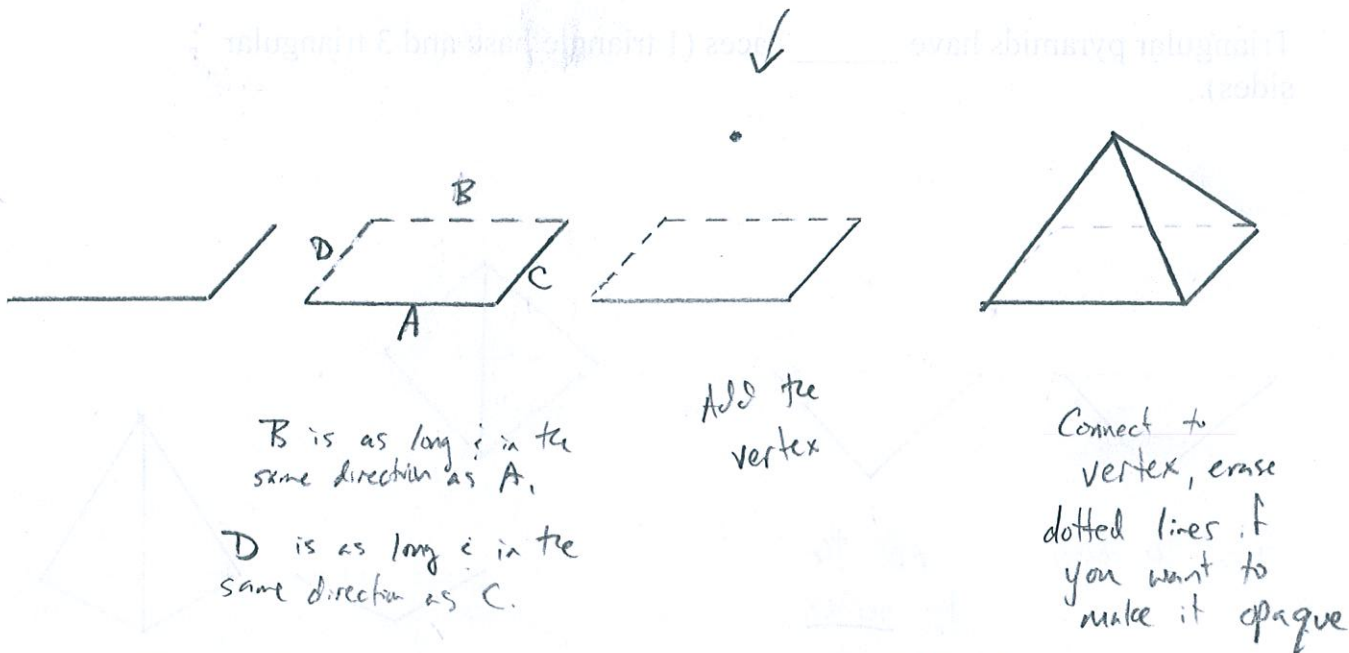 B
D
C
A
B is as long & in the
same direction as A.
D is as long & in the
same direction as C.
Add the
vertex
Connect to
vertex, erase
dotted lines if
you want to
make it opaque